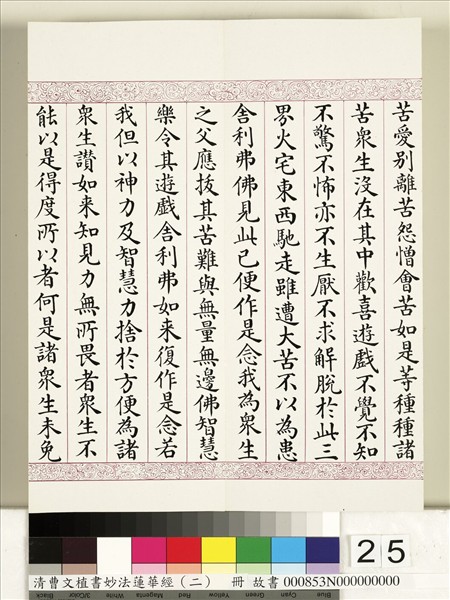 苦愛別離苦怨憎會苦如是等種種諸
苦衆生沒在其中歡喜遊戲不覺不知
不驚不怖亦不生厭不求解脫於此三
界火宅東西馳走雖遭大苦不以為患
舍利弗佛見此已便作是念我為衆生
之父應拔其苦難與無量無邊佛智慧
樂令其遊戲舍利弗如来復作是念若
我但以神力及智慧力捨於方便為諸
衆生讃如来知見力無所畏者衆生不
能以是得度所以者何是諸衆生未免
25
清曹文植書妙法蓮華經（二） 冊 故書 000853N000000000
Blue Cyan Green Yellow Red Magenta White 3/Color Black